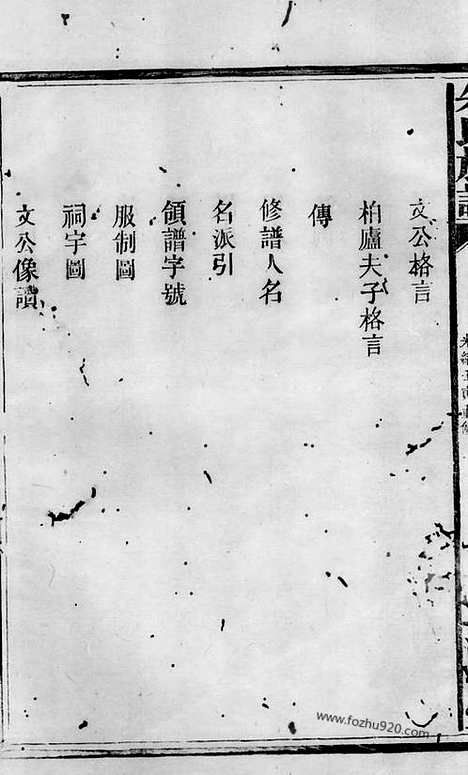 文公格言
柏廬夫子格言
傳
修譜人名
名派引
領譜字號
服制圖
祠宇圖
文公像讚
www.fozhu920.com